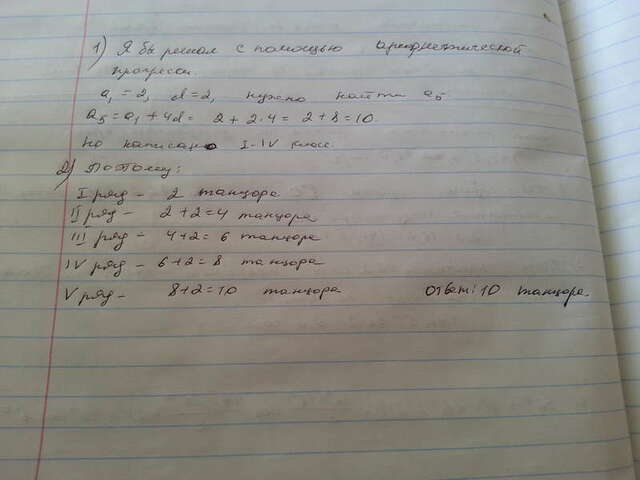 1) Я бы решал с помощью арифметической
прогресси.
a₁ = 2, d = 2, нужно найти a₅
a₅ = a₁ + 4d = 2 + 2·4 = 2 + 8 = 10.
Но написано I-IV класс.
2) Поэтому:
I ряд - 2 танцора
II ряд - 2+2=4 танцора
III ряд - 4+2= 6 танцора
IV ряд - 6+2=8 танцора
V ряд - 8+2=10 танцора Ответ: 10 танцора.